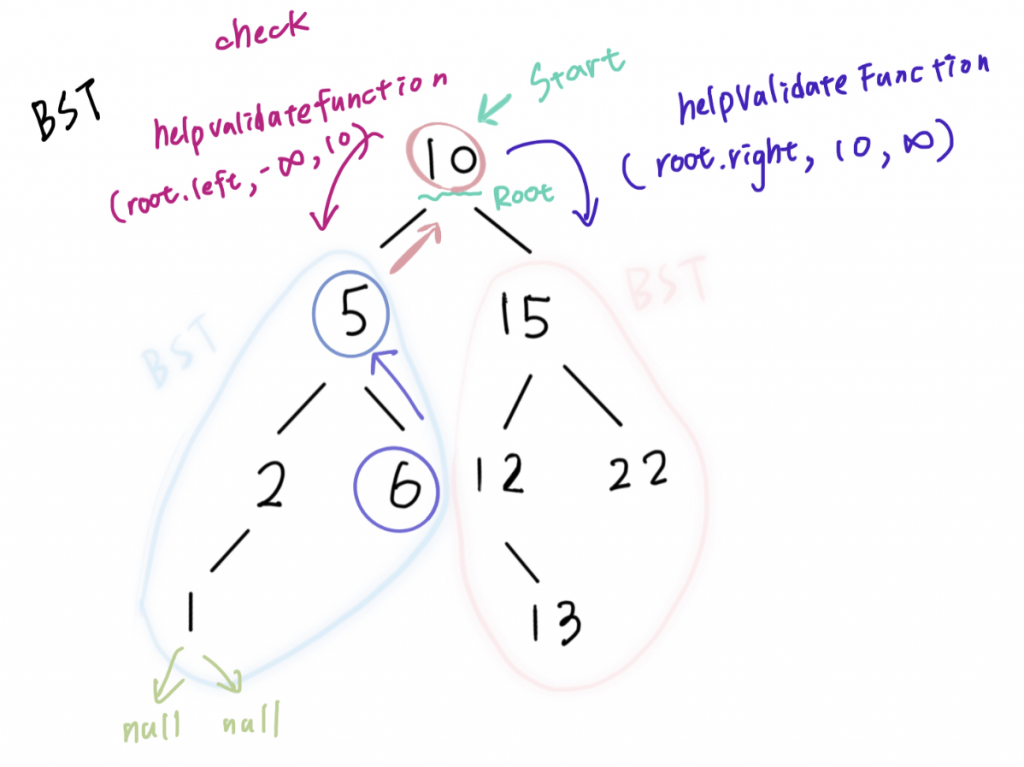 check
BST
helpvalidatefunction
(root.left, -∞, 10)
Start
helpValidate Function
(root.right, 10, ∞)
10
Root
BST
BST
5
15
2
6
12
22
1
13
null null